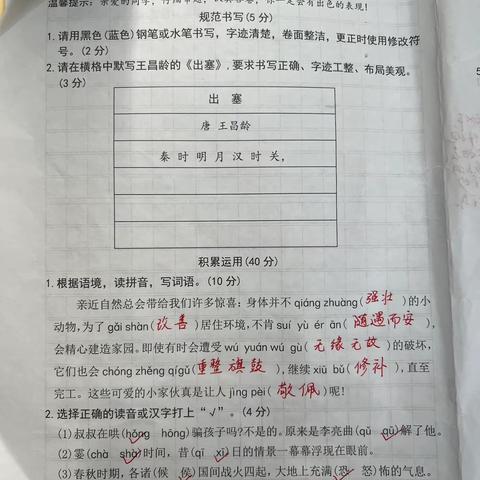 温馨提示：亲爱的同学，仔细审题，认真答卷，你一定会有出色的表现！
规范书写(5分)
1. 请用黑色(蓝色)钢笔或水笔书写，字迹清楚，卷面整洁，更正时使用修改符
号。(2分)
2. 请在横格中默写王昌龄的《出塞》，要求书写正确、字迹工整、布局美观。
(3分)
出 塞
唐 王昌龄
秦 时 明 月 汉 时 关，
积累运用(40分)
1. 根据语境，读拼音，写词语。(10分)
亲近自然总会带给我们许多惊喜：身体并不 qiáng zhuàng(强壮)的小
动物，为了 gǎi shàn(改善)居住环境，不肯 suí yù ér ān(随遇而安)，
会精心建造家园。即使有时会遭受 wú yuán wú gù(无缘无故)的破坏，
它们也会 chóng zhěng qígǔ(重整旗鼓)，继续 xiū bǔ(修补)，直至
完工。这些可爱的小家伙真是让人 jìng pèi(敬佩)呢！
2. 选择正确的读音或汉字打上“√”。(4分)
(1)叔叔在哄(hǒng hōng)骗孩子吗？不是的。原来是李亮曲(qǔ qū)解了他。
(2)霎(chà shà)时间，昔(qī xī)日的情景一幕幕浮现在眼前。
(3)春秋时期，各诸(候 侯)国间战火四起，大地上充满(恐 怒)怖的气息。